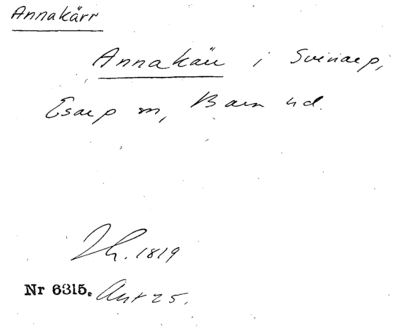 Annakärr
Annakärr i Svinarp,
Esarp m, Bara hd.
Th. 1819
Nr 6315. Avt 25.